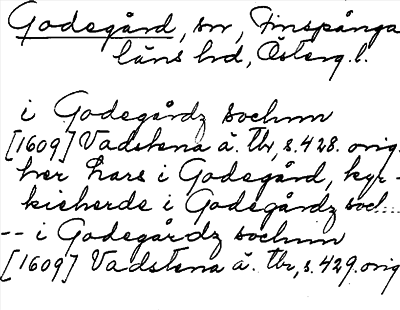 Godegård, sn, Finspånga
läns hd, Österg.l.
i Godegårdz sochnn
[1609] Vadstena ä. Tbr, s.428. orig.
her Lars i Godegård, kyr-
kieherde i Godegårdz soch...
-- i Godegårdz sochnn
[1609] Vadstena ä. Tbr, s.429. orig